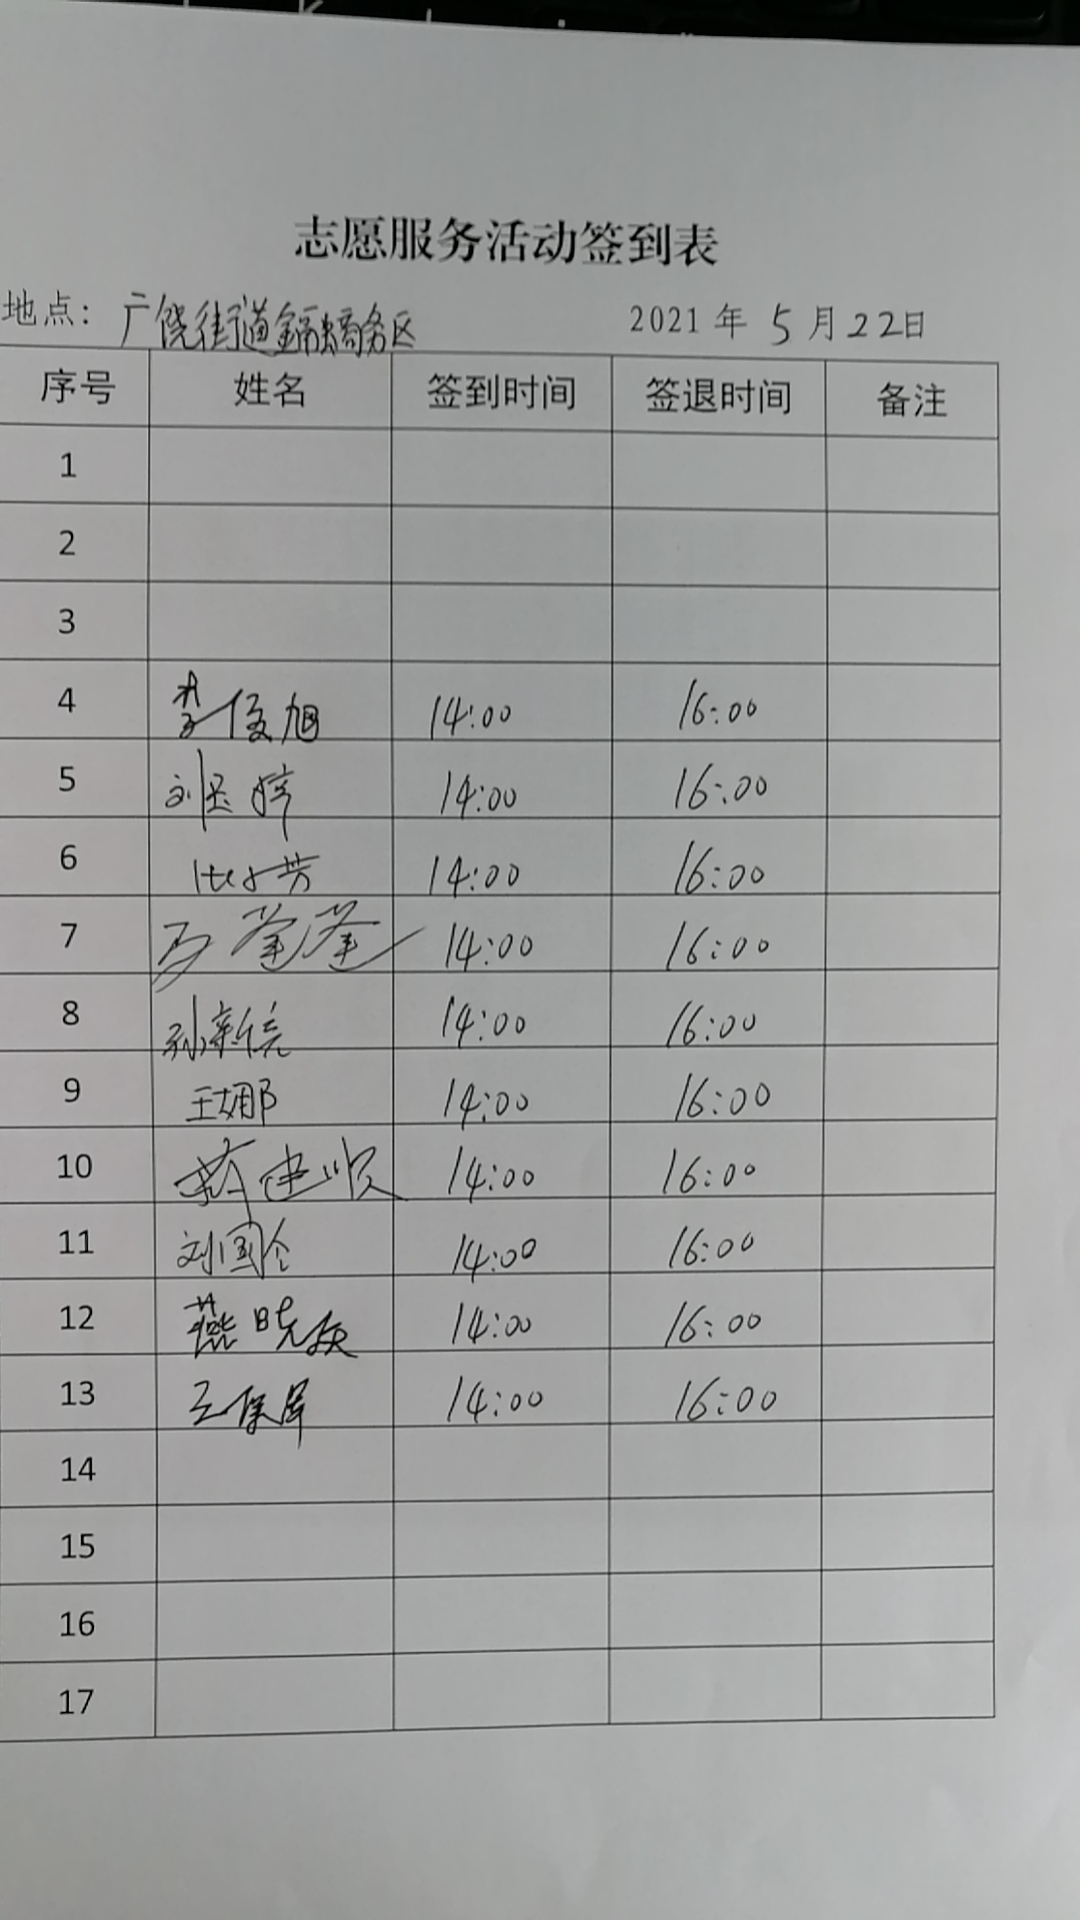 志愿服务活动签到表
地点: 广饶街道金融商务区 2021年5月22日
序号 姓名 签到时间 签退时间 备注
1
2
3
4 李俊旭 14:00 16:00
5 刘昱婷 14:00 16:00
6 14:00 16:00
7 14:00 16:00
8 孙新亮 14:00 16:00
9 王娜 14:00 16:00
10 蒋建顺 14:00 16:00
11 刘国全 14:00 16:00
12 燕晓辰 14:00 16:00
13 王保军 14:00 16:00
14
15
16
17